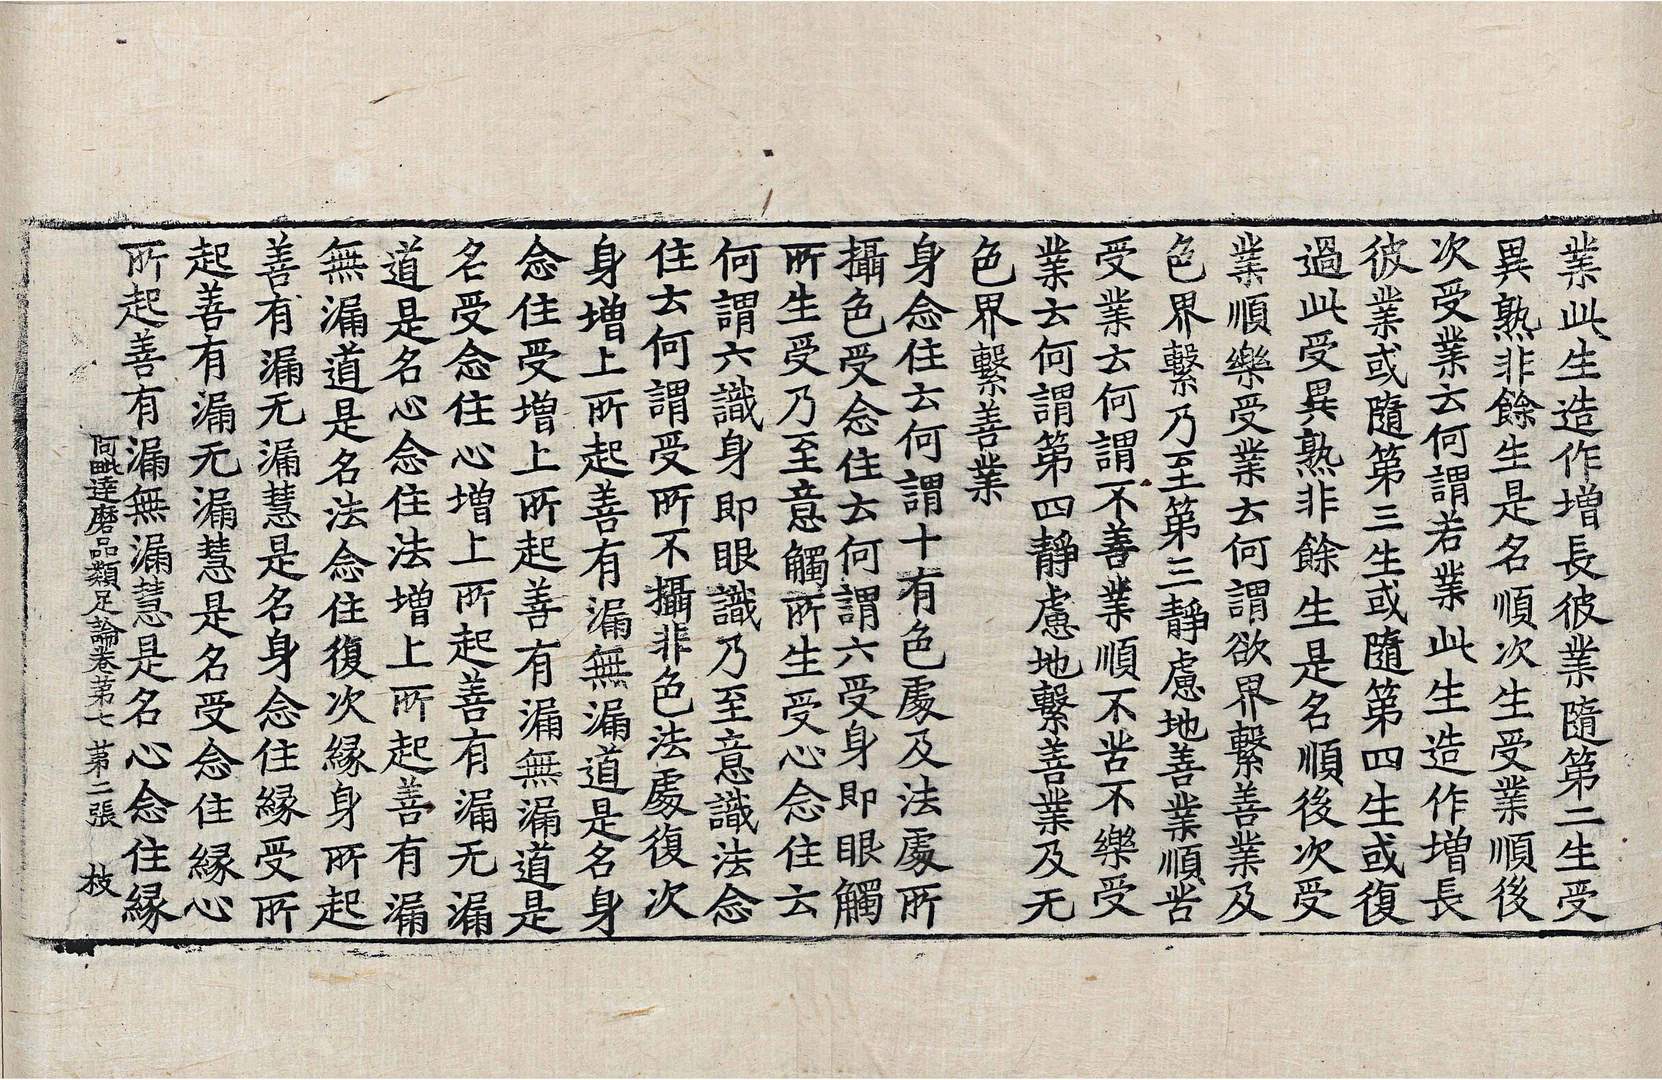 業此生造作增長彼業隨第二生受
異熟非餘生是名順次生受業順後
次受業云何謂若業此生造作增長
彼業或隨第三生或隨第四生或復
過此受異熟非餘生是名順後次受
業順樂受業云何謂欲界繫善業及
色界繫乃至第三靜慮地善業順苦
受業云何謂不善業順不苦不樂受
業云何謂第四靜慮地繫善業及无
色界繫善業
身念住云何謂十有色處及法處所
攝色受念住云何謂六受身即眼觸
所生受乃至意觸所生受心念住云
何謂六識身即眼識乃至意識法念
住云何謂受所不攝非色法處復次
身增上所起善有漏無漏道是名身
念住受增上所起善有漏無漏道是
名受念住心增上所起善有漏无漏
道是名心念住法增上所起善有漏
無漏道是名法念住復次緣身所起
善有漏无漏慧是名身念住緣受所
起善有漏无漏慧是名受念住緣心
所起善有漏無漏慧是名心念住緣
阿毗達磨品類足論卷第七 第二張 枝